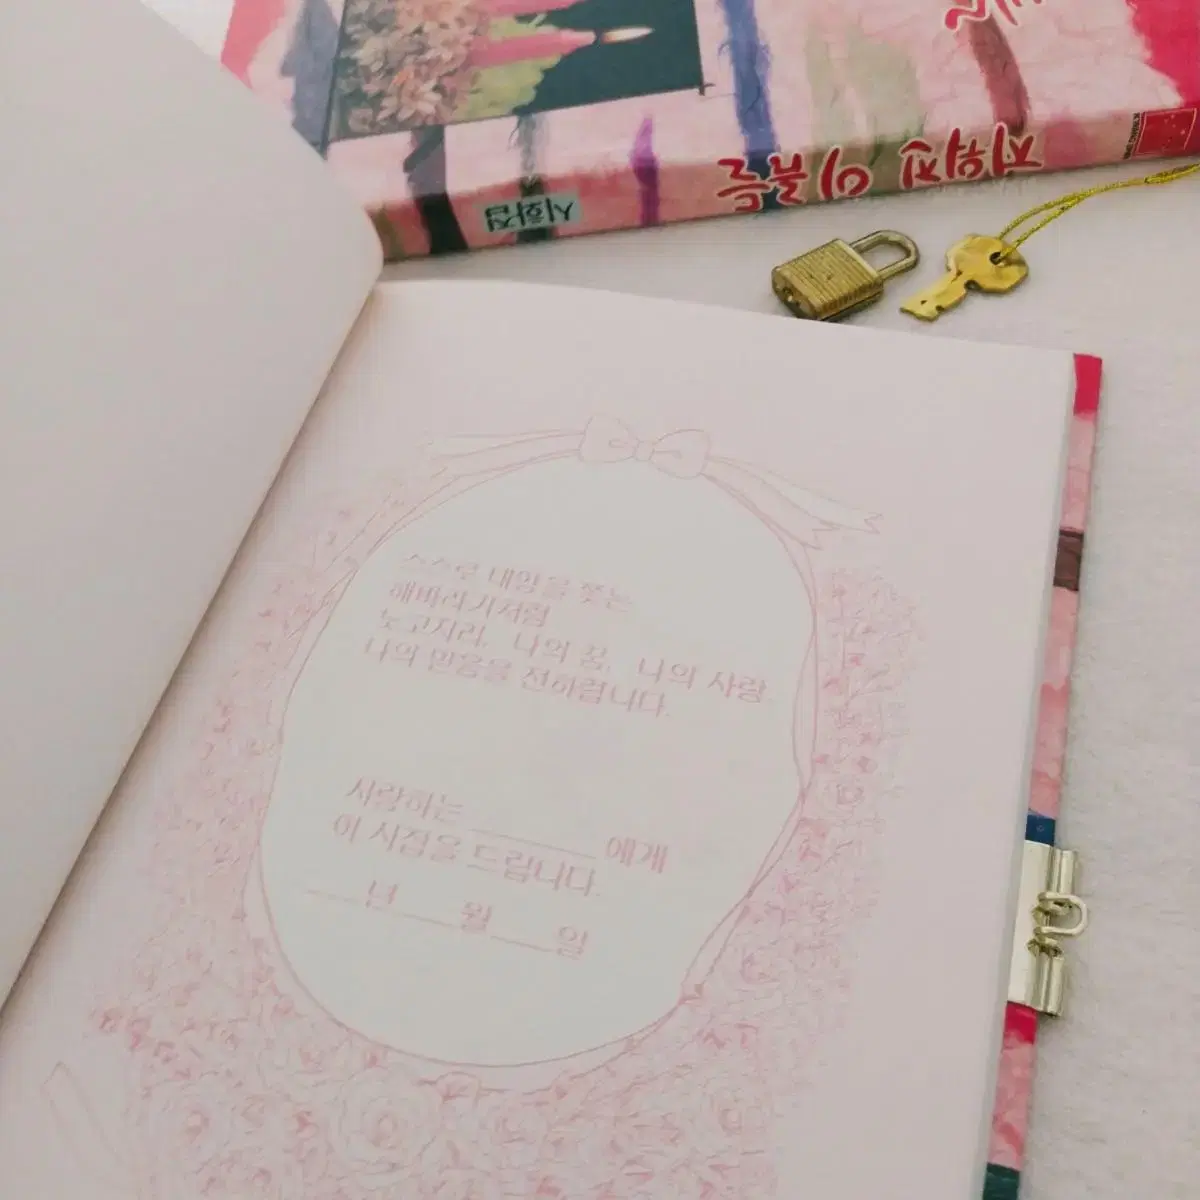 지워진 이름들
시화집
스스로 태양을 쫓는
해바라기처럼
노고지리, 나의 꿈, 나의 사랑,
나의 믿음을 전하렵니다.
사랑하는 ________ 에게
이 시집을 드립니다.
___년 ___월 ___일